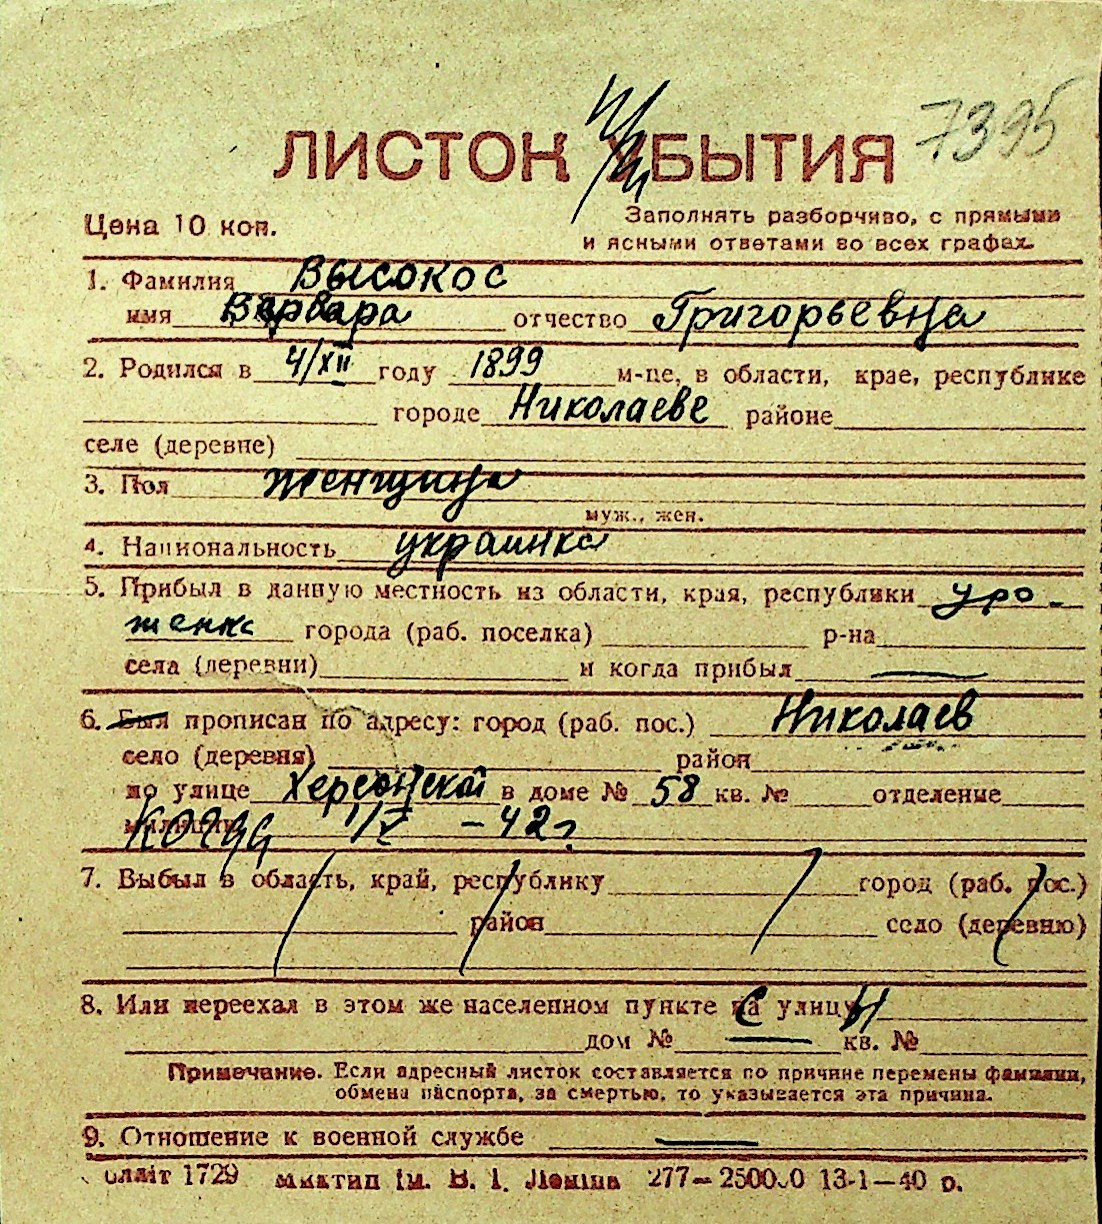 ЛИСТОК УБЫТИЯ 7395
Цена 10 коп.
Заполнять разборчиво, с прямыми
и ясными ответами во всех графах.
1. Фамилия Высокос
имя Варвара отчество Григорьевна
2. Родился в 4/XII году 1899 м-це, в области, крае, республике
городе Николаеве районе
селе (деревне)
3. Пол женщина
муж., жен.
4. Национальность украинка
5. Прибыл в данную местность из области, края, республики уро-
женка города (раб. поселка) р-на
села (деревни) и когда прибыл —
6. Был прописан по адресу: город (раб. пос.) Николаев
село (деревня) район
по улице Херсонской в доме № 58 кв. № отделение
милиции когда 1/V - 42 г.
7. Выбыл в область, край, республику город (раб. пос.)
район село (деревню)
8. Или переехал в этом же населенном пункте на улицу
дом № — кв. №
Примечание. Если адресный листок составляется по причине перемены фамилии,
обмена паспорта, за смертью, то указывается эта причина.
9. Отношение к военной службе —
1729 ім. В. І. Леніна 277— 13-1—40 р.